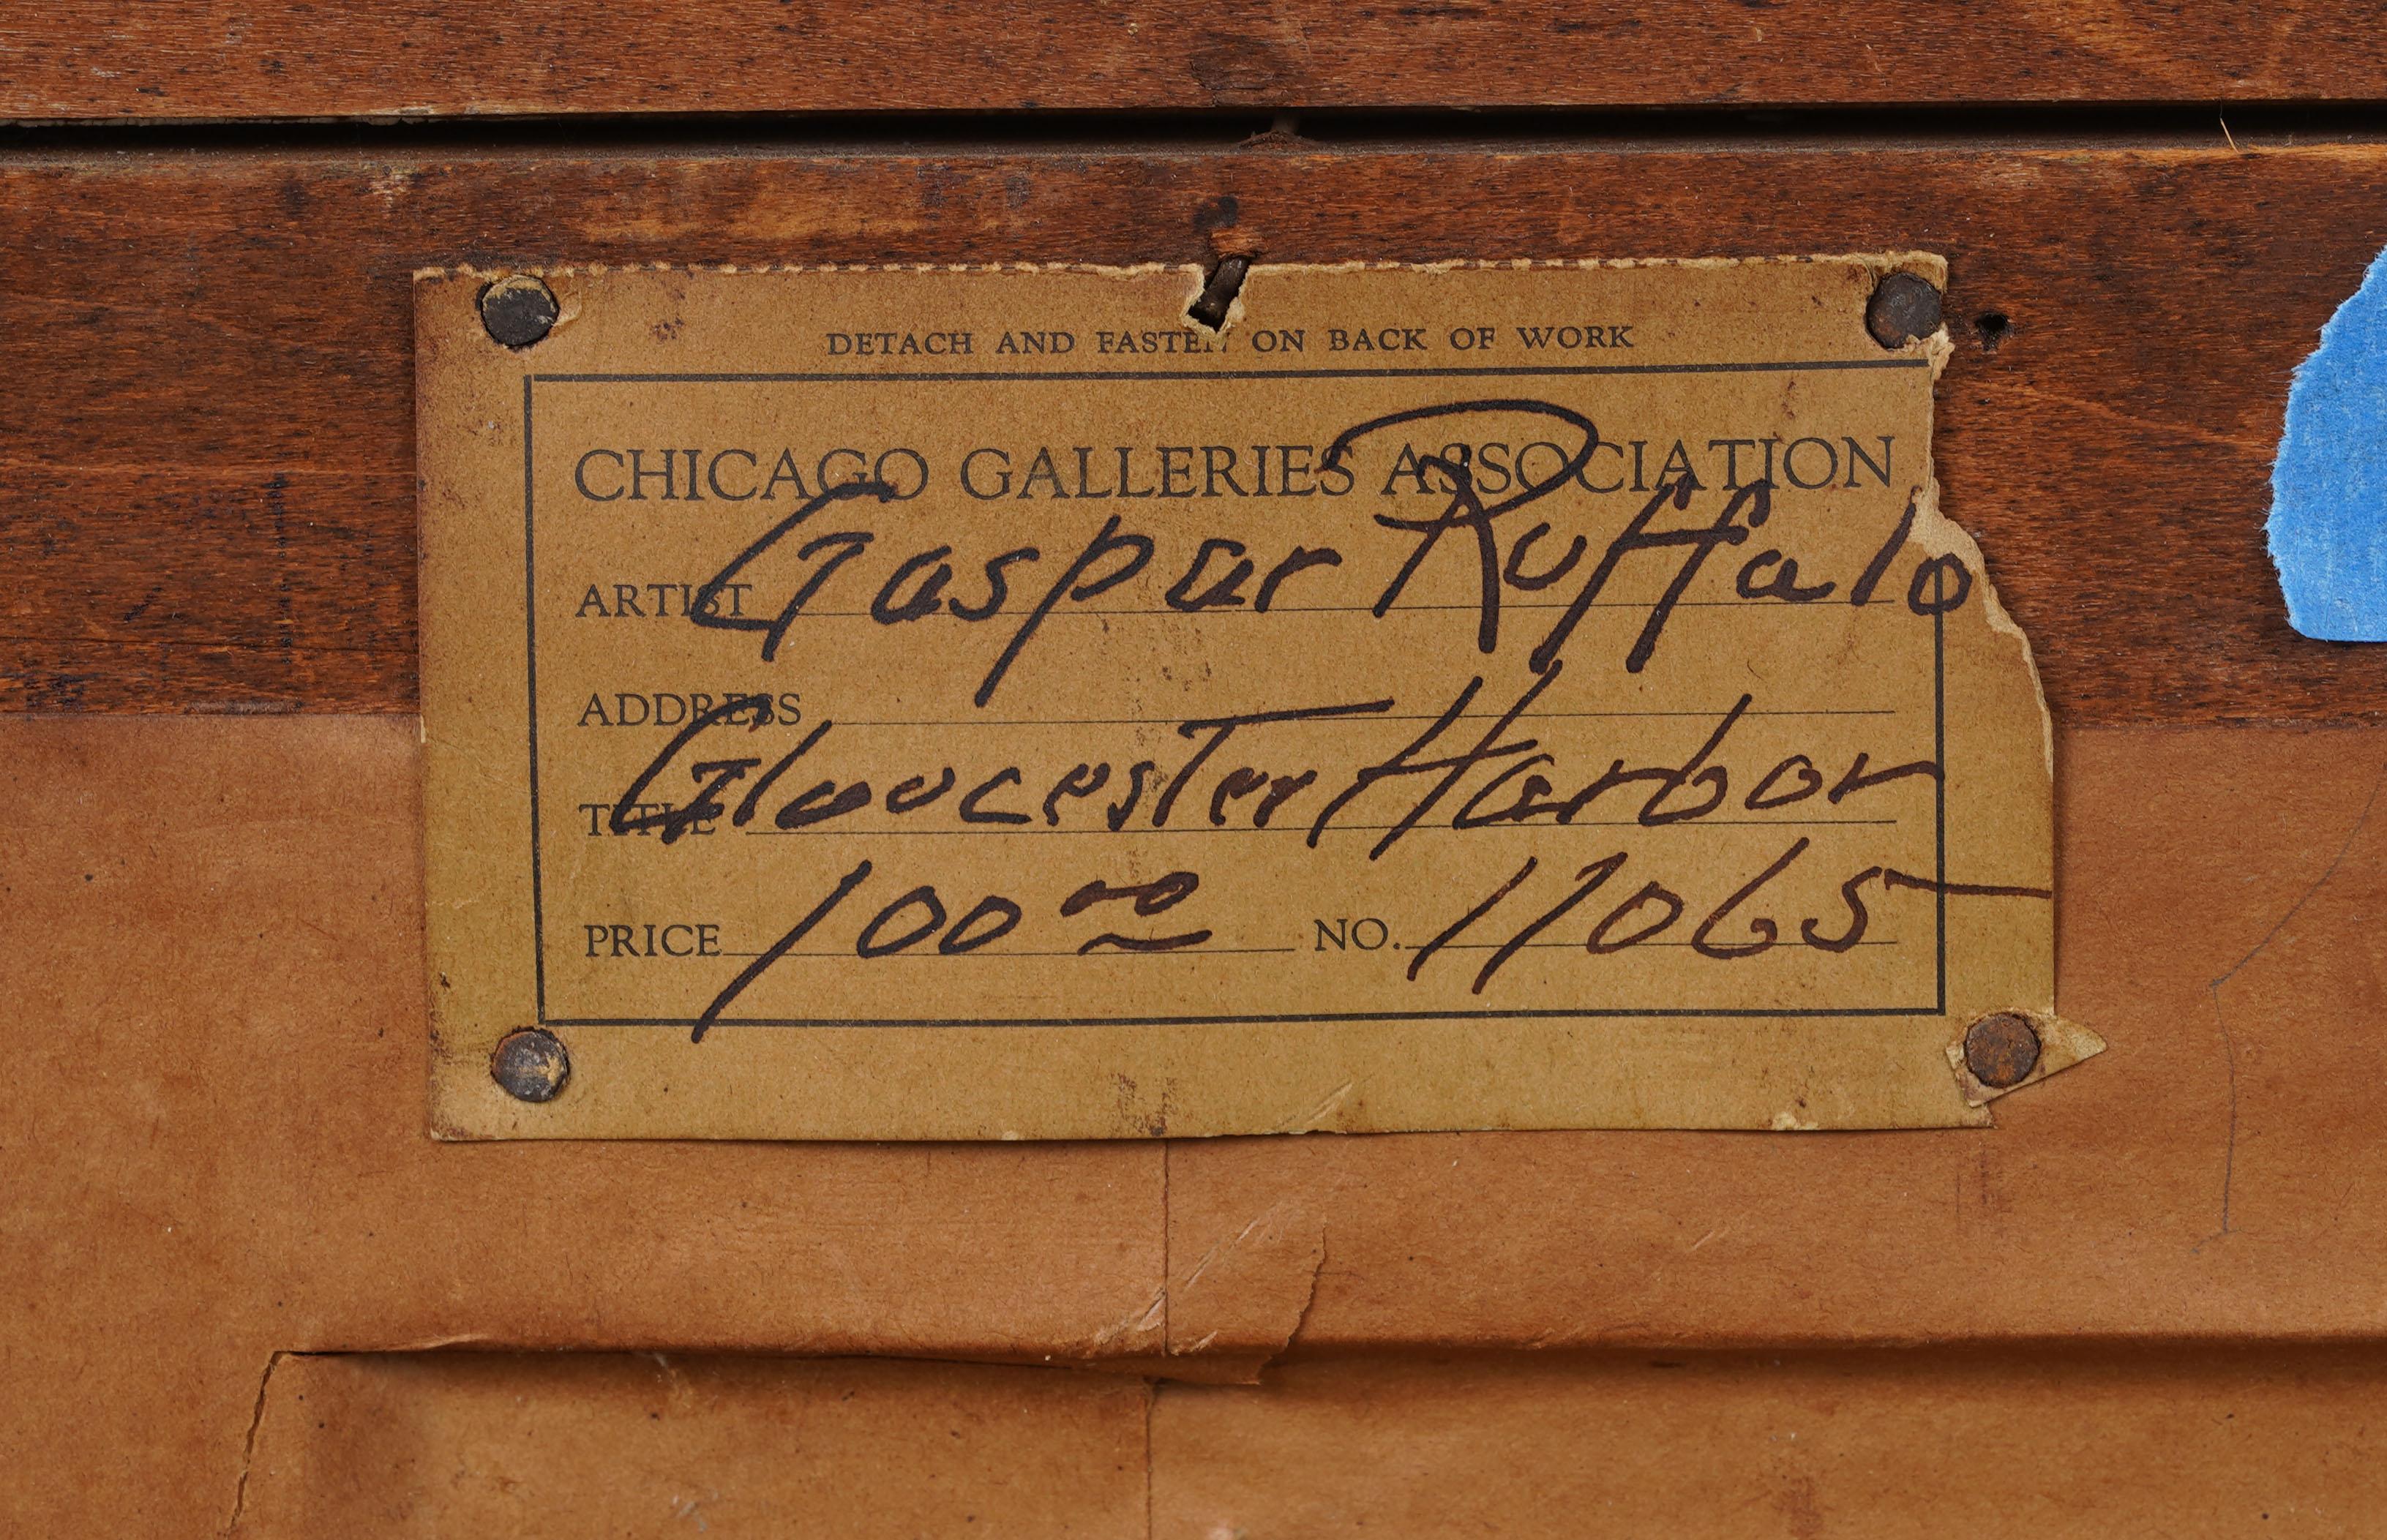 DETACH AND FASTEN ON BACK OF WORK
CHICAGO GALLERIES ASSOCIATION
ARTIST Gaspar Ruffalo
ADDRESS
TITLE Gloucester Harbor
PRICE 100 00 NO. 11065